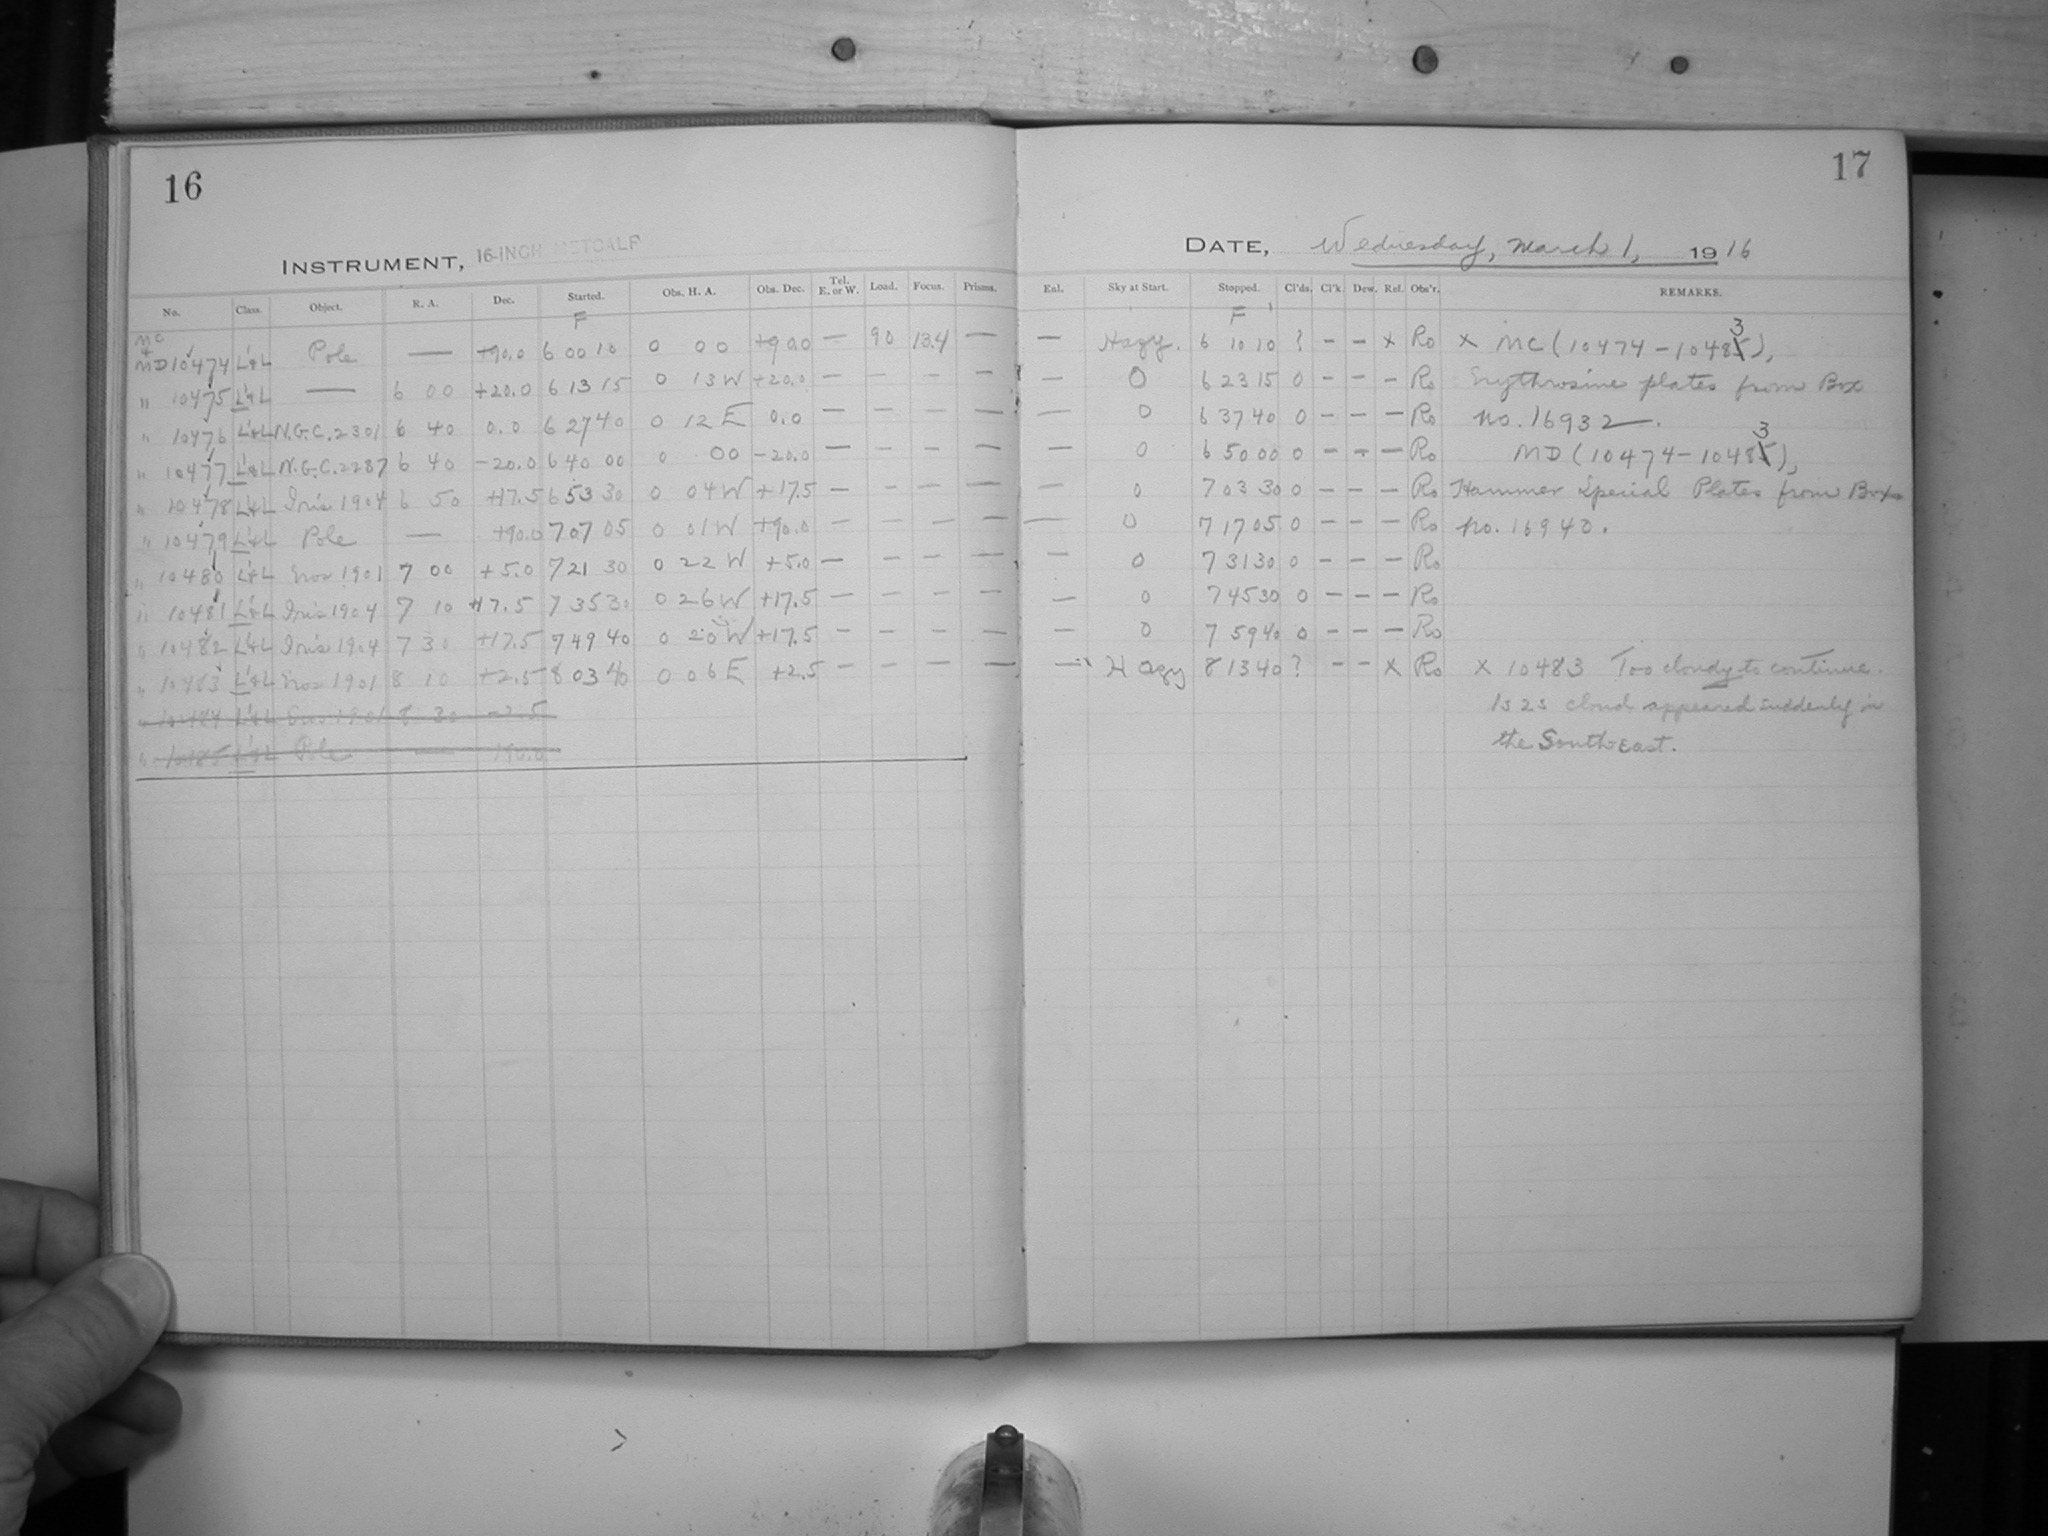 16
17
INSTRUMENT, 16-INCH METCALF
DATE, Wednesday, March 1, 1916
No. Class. Object. R. A. Dec. Started. Obs. H. A. Obs. Dec. Tel. E. or W. Load. Focus. Prisms. Enl. Sky at Start. Stopped. Cl'ds. Cl'k. Dew. Ref. Obs'r. REMARKS.
F F
MC & MD 10474 L'&L Pole — +90.0 6 00 10 0 00 +90.0 — 90 13.4 — — Hazy. 6 10 10 ? — — x Ro x MC (10474-10483),
" 10475 L'&L — 6 00 +20.0 6 13 15 0 13 W +20.0 — — — — — 0 6 23 15 0 — — — Ro Erythrosine plates from Box
" 10476 L'&L N.G.C. 2301 6 40 0.0 6 27 40 0 12 E 0.0 — — — — — 0 6 37 40 0 — — — Ro no. 16932.
" 10477 L'&L N.G.C. 2287 6 40 -20.0 6 40 00 0 00 -20.0 — — — — — 0 6 50 00 0 — — — Ro MD (10474-10483),
" 10478 L'&L Iris 1904 6 50 +17.5 6 53 30 0 04 W +17.5 — — — — — 0 7 03 30 0 — — — Ro Hammer Special Plates from Box
" 10479 L'&L Pole — +90.0 7 07 05 0 01 W +90.0 — — — — — 0 7 17 05 0 — — — Ro no. 16940.
" 10480 L'&L Eros 1901 7 00 +5.0 7 21 30 0 22 W +5.0 — — — — — 0 7 31 30 0 — — — Ro
" 10481 L'&L Iris 1904 7 10 +17.5 7 35 30 0 26 W +17.5 — — — — — 0 7 45 30 0 — — — Ro
" 10482 L'&L Iris 1904 7 30 +17.5 7 49 40 0 20 W +17.5 — — — — — 0 7 59 40 0 — — — Ro
" 10483 L'&L Eros 1901 8 10 +2.5 8 03 40 0 06 E +2.5 — — — — — Hazy 8 13 40 ? — — x Ro x 10483 Too cloudy to continue.
" 10484 L'&L Eros 1901 8 30 -2.5 cloud appeared suddenly in
" 10485 L'&L Pole — +90.0 the Southeast.